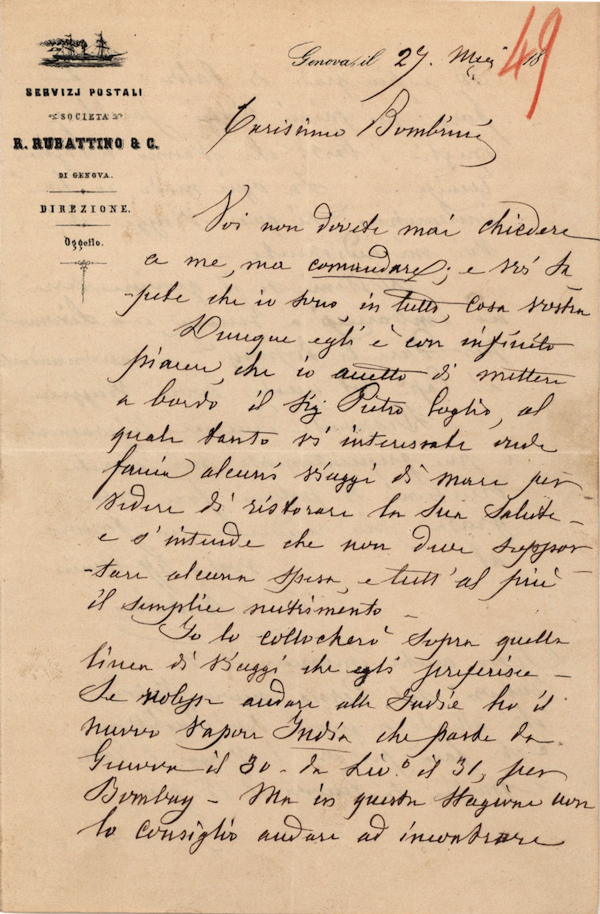 SERVIZJ POSTALI
SOCIETÀ
R. RUBATTINO & C.
DI GENOVA.
DIREZIONE.
Oggetto.
Genova, il 27. 18
49
Carissimo Bombrini
Voi non dovete mai chiedere
a me, ma comandare; e voi sa
-pete che io sono, in tutto, cosa vostra
Dunque egli è con infinito
piacere, che io accetto di mettere
a bordo il Sig Pietro, al
quale tanto vi interessate onde
faccia alcuni viaggi di mare per
vedere di ristorare la sua salute -
e s'intende che non deve suppor
-tare alcuna spesa, e tutt'al più
il semplice nutrimento -
Io lo collocherò sopra quella
linea di viaggi che egli preferisce -
Se volesse andare alle Indie ho il
nuovo vapore India che parte da
Genova il 30 - da Liv.º il 31, per
Bombay - Ma in questa stagione non
lo consiglio andare ad incontrare